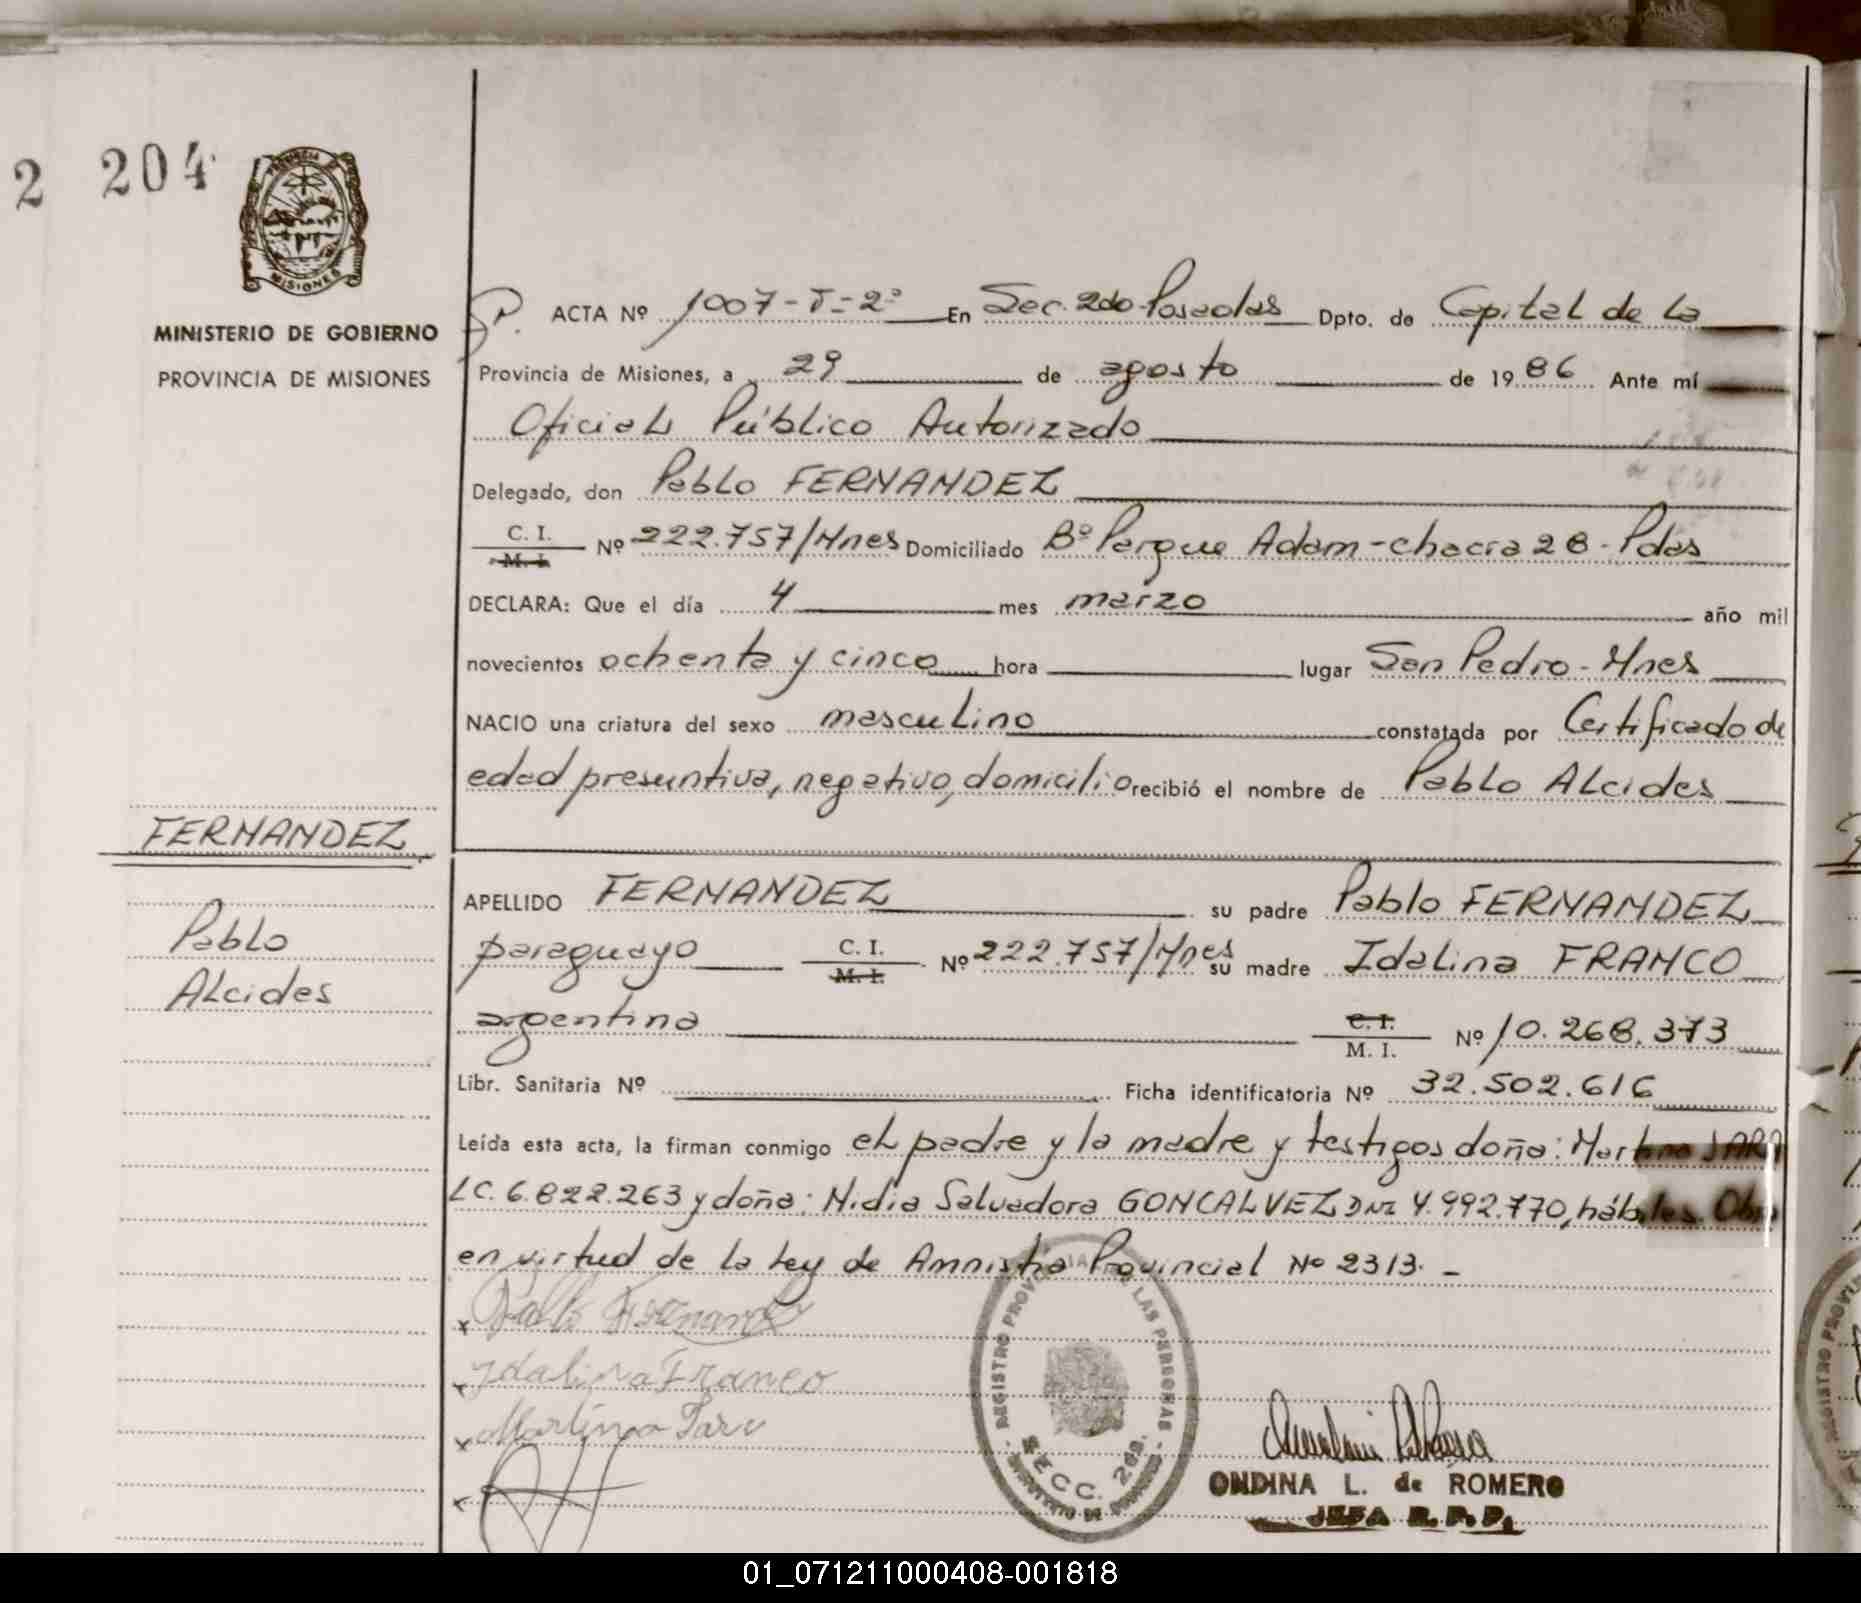 2 204
PROVINCIA DE
MISIONES
MINISTERIO DE GOBIERNO
PROVINCIA DE MISIONES
ACTA Nº 1007-T-2º En Sec. 2do Posadas Dpto. de Capital de la
Provincia de Misiones, a 29 de agosto de 1986 Ante mí
Oficial Público Autorizado
Delegado, don Pablo FERNANDEZ
C. I.
M. I.
Nº 222.757/Mnes Domiciliado Bº Parque Adam-chacra 28-Pdas
DECLARA: Que el día 4 mes marzo año mil
novecientos ochenta y cinco hora lugar San Pedro-Mnes
NACIO una criatura del sexo masculino constatada por Certificado de
edad presuntiva, negativo, domicilio recibió el nombre de Pablo Alcides
FERNANDEZ
Pablo
Alcides
APELLIDO FERNANDEZ su padre Pablo FERNANDEZ
paraguayo C. I. M. I. Nº 222.757/Mnes su madre Idalina FRANCO
argentina C. I. M. I. Nº 10.268.373
Libr. Sanitaria Nº Ficha identificatoria Nº 32.502.616
Leída esta acta, la firman conmigo el padre y la madre y testigos doña: Martina JARA
LC. 6.822.263 y doña: Nidia Salvadora GONCALVEZ DNI 4.992.770, hábiles. Obra
en virtud de la Ley de Amnistía Provincial Nº 2313.-
x Pablo Fernandez
x Idalina Franco
x Martina Jara
x
REGISTRO PROVINCIAL DE LAS PERSONAS
SECC. 2da.
ONDINA L. de ROMERO
JEFA R. P. P.
01_071211000408-001818